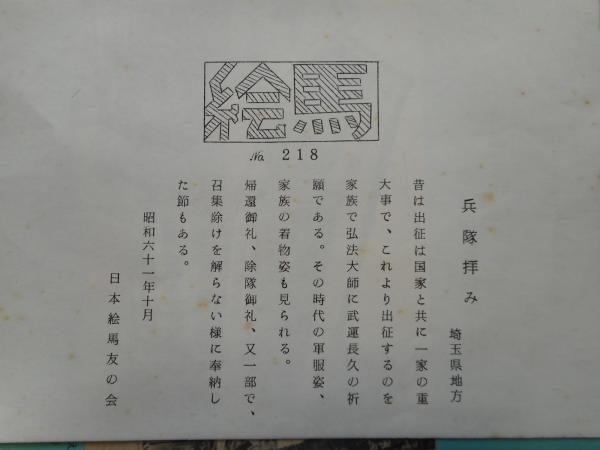 絵馬
No. 218
兵隊拝み
埼玉県地方
昔は出征は国家と共に一家の重
大事で、これより出征するのを
家族で弘法大師に武運長久の祈
願である。その時代の軍服姿、
家族の着物姿も見られる。
帰還御礼、除隊御礼、又一部で、
召集除けを解らない様に奉納し
た節もある。
昭和六十一年十月
日本絵馬友の会